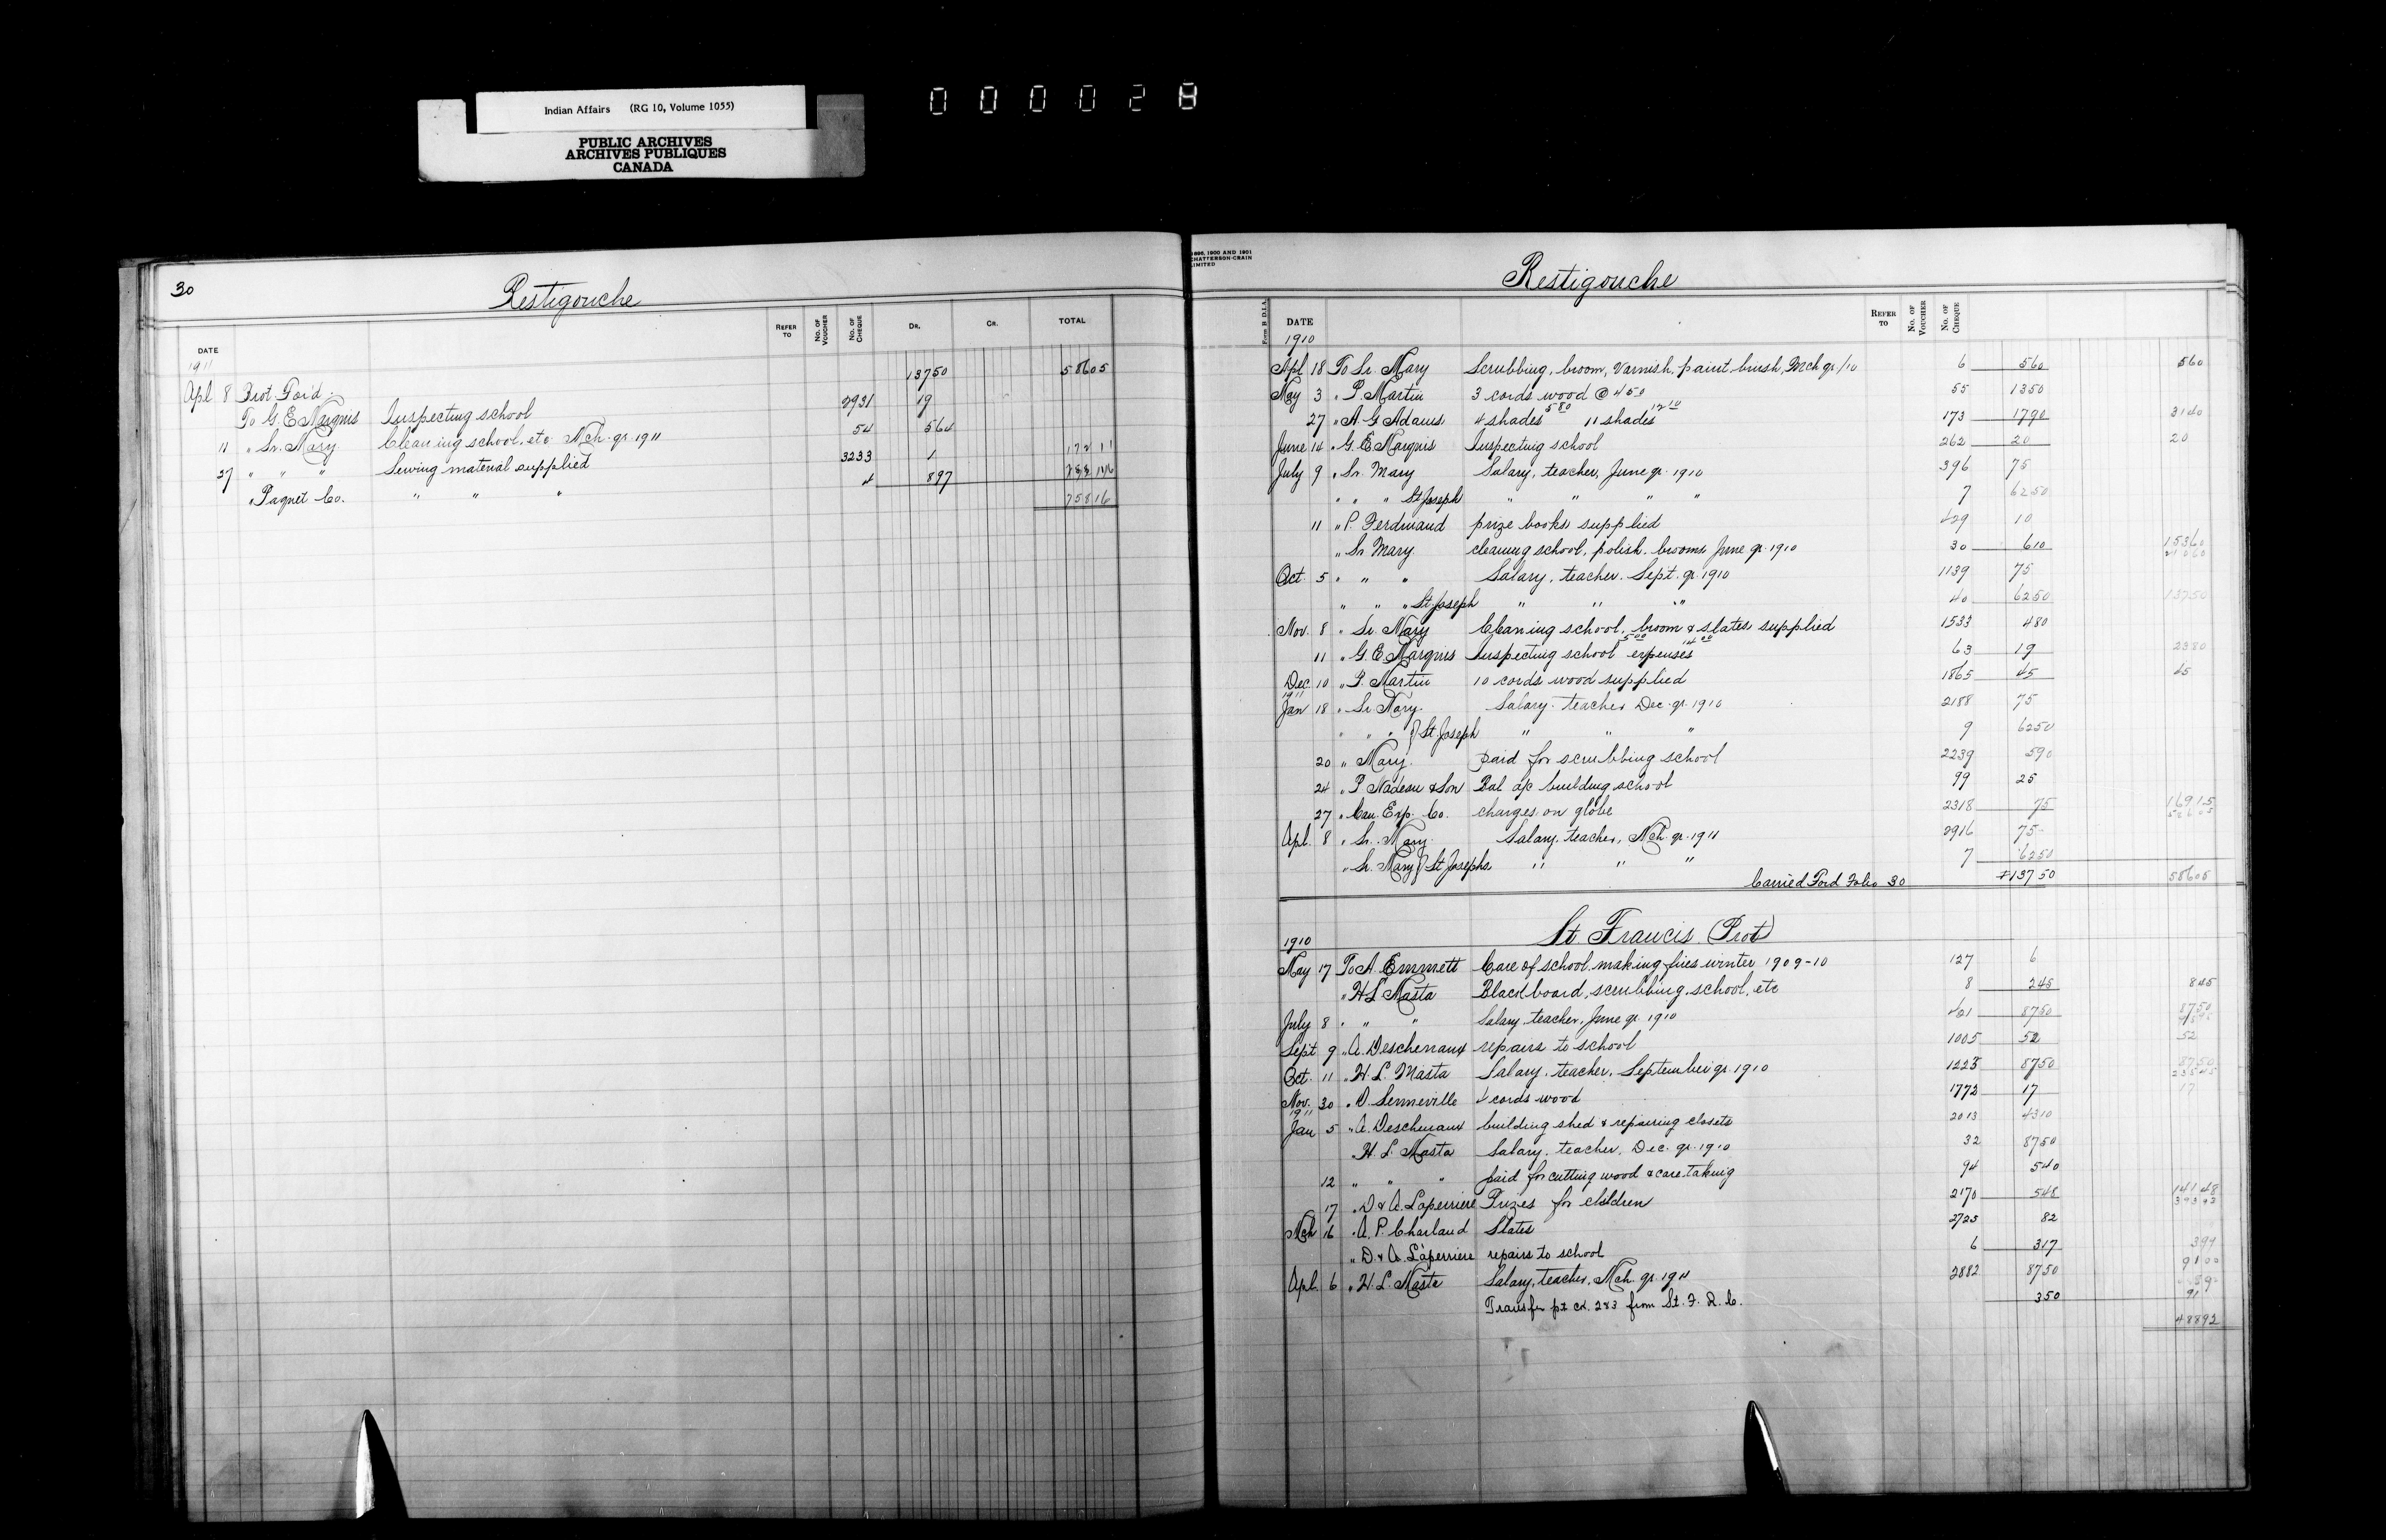 Indian Affairs (RG 10, Volume 1055)
PUBLIC ARCHIVES
ARCHIVES PUBLIQUES
CANADA
000028
30
Restigouche
DATE REFER TO No. OF VOUCHER No. OF CHEQUE DR. CR. TOTAL
1911
Apl 8 Brot For'd. 13750 58605
To G. E. Marquis Inspecting school 2931 19
11 " Sr. Mary Cleaning school, etc Mch. qr. 1911 54 564
27 " " " Sewing material supplied 3233 1 17211
" Paquet Co. " " " 4 897
75816
1896, 1900 AND 1901
CHATTERSON-CRAIN
LIMITED
Restigouche
Form B D.I.A. DATE REFER TO No. OF VOUCHER No. OF CHEQUE
1910
Apl 18 To Sr. Mary Scrubbing, broom, Varnish, paint brush, Mch qr/10 6 560 560
May 3 " P. Martin 3 cords wood @ 450 55 1350
27 " A. G. Adams 4 shades 580 11 shades 1210 173 1790 3140
June 14 " G. E. Marquis Inspecting school 262 20 20
July 9 " Sr. Mary Salary, teacher, June qr. 1910 396 75
" " " St Joseph " " " " 7 6250
11 " P. Ferdinand prize books supplied 429 10
" Sr Mary cleaning school, polish, brooms June qr. 1910 30 610 15360
21060
Oct 5 " " " Salary, teacher. Sept. qr. 1910 1139 75
" " " St Joseph " " " 40 6250 13750
Nov. 8 " Sr. Mary Cleaning school, broom & slates supplied 1533 480
11 " G. E. Marquis Inspecting school 500 expenses 1400 63 19 2380
Dec. 10 " P. Martin 10 cords wood supplied 1865 45 45
1911
Jan 18 " Sr. Mary. Salary teacher Dec. qr. 1910 2188 75
" " " St Joseph " " " 9 6250
20 " Mary. paid for scrubbing school 2239 590
24 " P. Nadeau & Son Bal a/c building school 99 25
27 " Can. Exp. Co. charges on globe 2318 75 16915
Apl. 8 " Sr. Mary. Salary, teacher, Mch. qr. 1911 2916 75
" Sr. Mary St Josephs " " " 7 6250
Carried Ford Folio 30 13750 58605
St Francis (Prot)
1910
May 17 To A. Emmett Care of school making fires winter 1909-10 127 6
" H L Masta Blackboard, scrubbing, school, etc 8 245 845
July 8 " " " Salary teacher, June qr. 1910 461 8750 8750
Sept 9 " A. Deschenaux repairs to school 1005 52 52
Oct. 11 " H. L. Masta Salary, teacher, September qr. 1910 1223 8750 8750
Nov. 30 " D. Senneville 4 cords wood 1772 17 17
1911
Jan 5 " A. Deschenaux building shed & repairing closets 2013 4310
H. L. Masta Salary, teacher, Dec. qr. 1910 32 8750
12 " " " paid for cutting wood & care-taking 94 540
17 " D & A. Laperriere Prizes for children 2170 548 14148
39393
Mch 16 " A. P. Charland Slates 2725 82
" D & A. Laperriere repairs to school 6 317 399
Apl. 6 " H. L. Masta Salary, teacher, Mch. qr. 1911 2882 8750 9100
Transfer pt cd. 283 from St. F. R. C. 350
48892